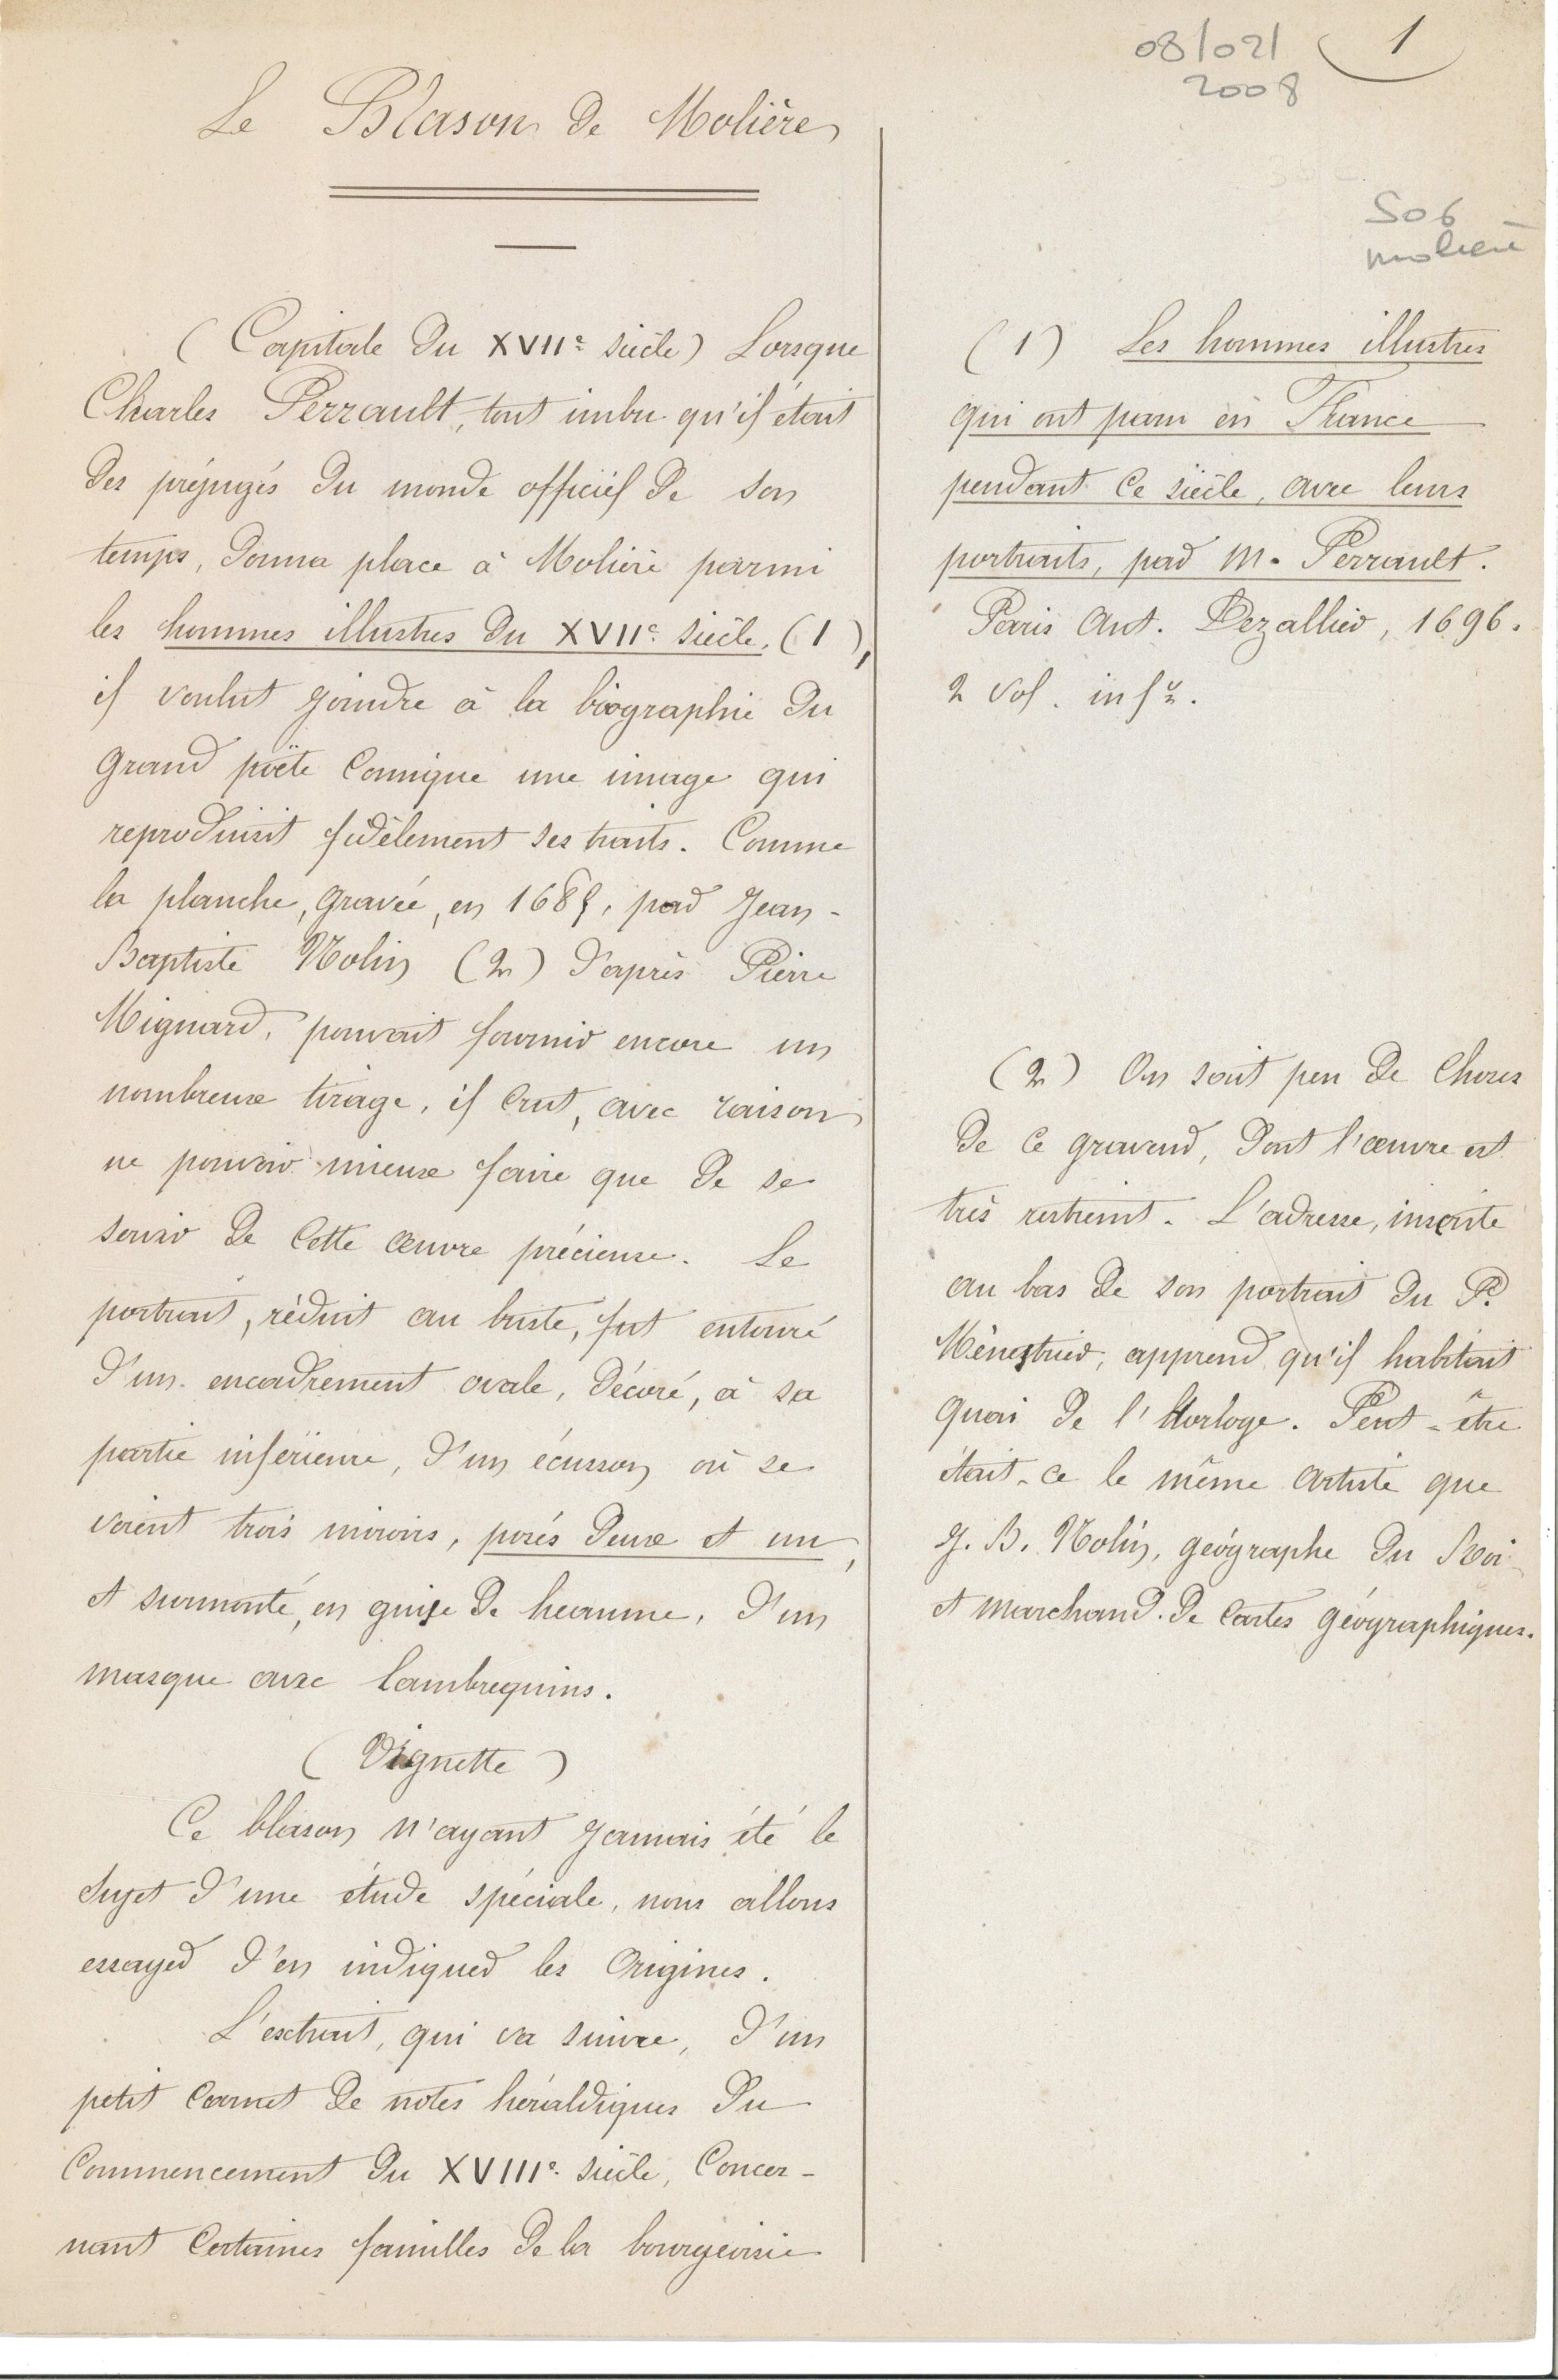 08/02/
2008
1
506
molière
Le Blason de Molière
(Capitale du XVIIe siècle) Lorsque
Charles Perrault, tout imbu qu'il était
des préjugés du monde officiel de son
temps, donna place à Molière parmi
les hommes illustres du XVIIe siècle, (1),
il voulut joindre à la biographie du
grand poëte comique une image qui
reproduisit fidèlement ses traits. Comme
la planche, gravée, en 1685, par Jean-
Baptiste Nolin (2) d'après Pierre
Mignard, pouvait fournir encore un
nombreux tirage, il crut, avec raison
ne pouvoir mieux faire que de se
servir de cette œuvre précieuse. Le
portrait, réduit au buste, fut entouré
d'un encadrement ovale, décoré, à sa
partie inférieure, d'un écusson où se
voient trois miroirs, posés deux et un,
et surmonté, en guise de heaume, d'un
masque avec lambrequins.
(Vignette)
Ce blason n'ayant jamais été le
sujet d'une étude spéciale, nous allons
essayer d'en indiquer les origines.
L'extrait, qui va suivre, d'un
petit carnet de notes héraldiques du
commencement du XVIIIe siècle, concer-
nant certaines familles de la bourgeoisie
(1) Les hommes illustres
qui ont paru en France
pendant ce siècle, avec leurs
portraits, par M. Perrault.
Paris Ant. Dezallier, 1696.
2 vol. in fo.
(2) On sait peu de choses
de ce graveur, dont l'œuvre est
très restreint. L'adresse, inscrite
au bas de son portrait du P.
Ménestrier, apprend qu'il habitait
quai de l'Horloge. Peut-être
était-ce le même artiste que
J. B. Nolin, géographe du Roi
et marchand de cartes géographiques.